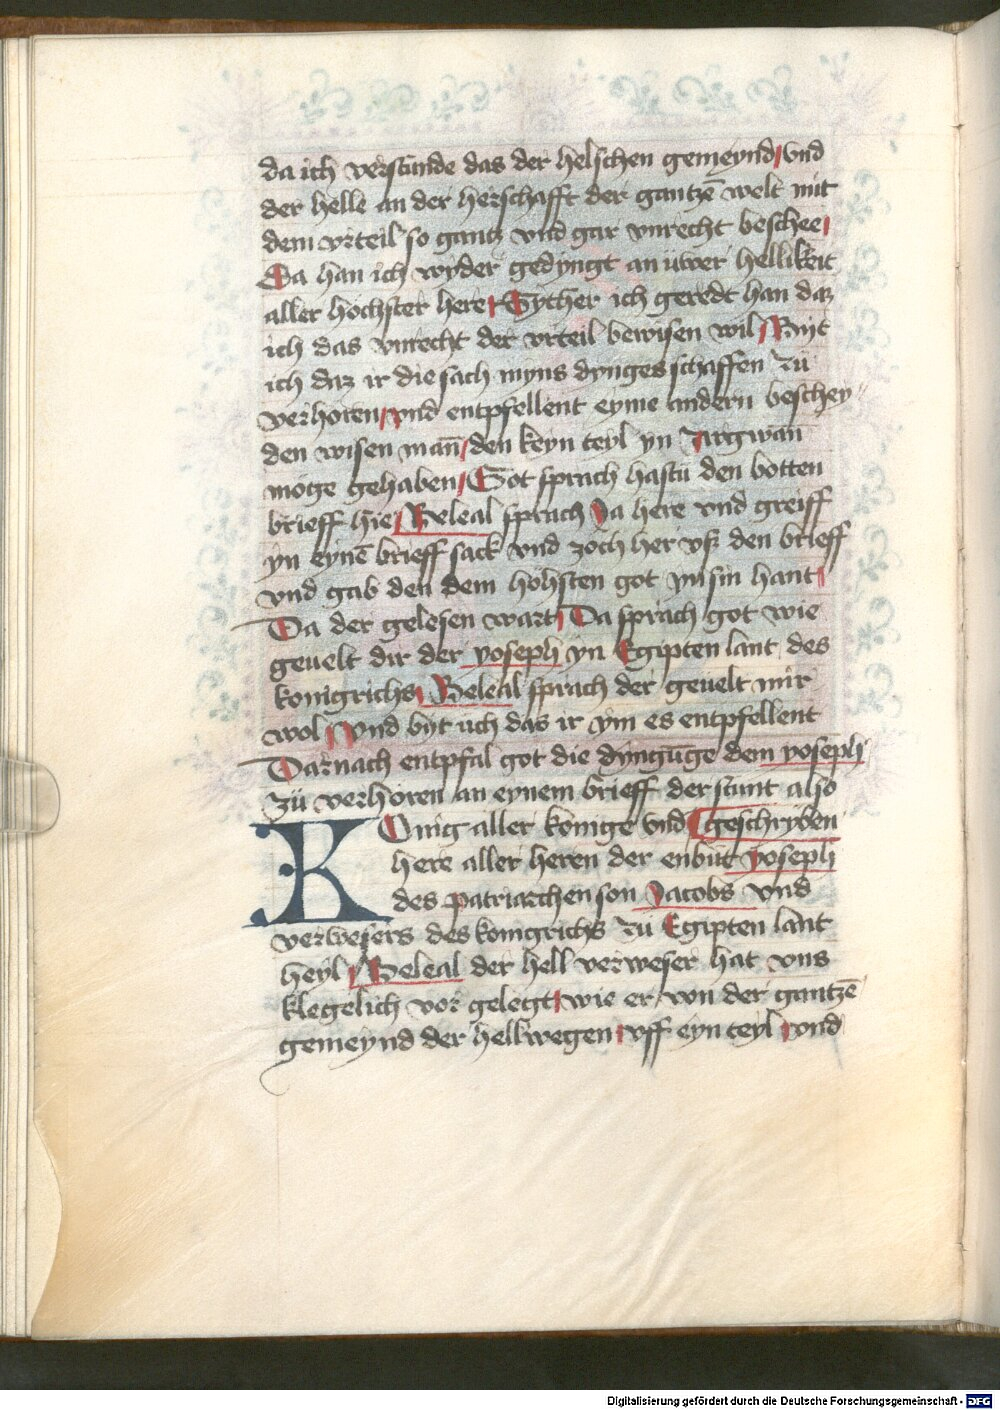 da ich verstunde das der helschen gemeynd / vnd
der helle an der herschafft der gantzē welt mit
dem vrteil so gantz vnd gar vnrecht beschee /
Da han ich wyder gedyngt an uwer hellikeit
aller hochster here / Syther ich geredt han daz
ich das vnrecht der vrteil bewisen wil / Byt
ich daz ir die sach myns dynges schaffen zü
verhoren / vnd entpfellent eyme andern beschey
den wisen mañ / den keyn teyl yn argwan
moge gehaben / Got sprach hastu den botten
brieff hie / Beleal sprach Ja here vnd greiff
yn eynē brieff sack vnd zoch her vß den brieff
vnd gab den dem höhsten got yn sin hant /
Da der gelesen wart / Da sprach got wie
geuelt dir der yoseph yn Egipten lant des
konigrichs / Beleal sprach der geuelt mir
wol / vnd byt uch das ir ym es entpfellent
Darnach entpfal got die dyngūge dem yoseph
zü verhoren an eynem brieff der stunt also
KOnig aller konige vnd geschryben
here aller heren der enbüt yoseph
des patriarchen son Jacobs vnd
verwesers des konigrichs zü Egipten lant
heyl / Beleal der hell verweser hat vns
klegelich vor gelegt / wie er von der gantzē
gemeynd der hell wegen / vff eyn teyl / vnd
Digitalisierung gefördert durch die Deutsche Forschungsgemeinschaft - DFG